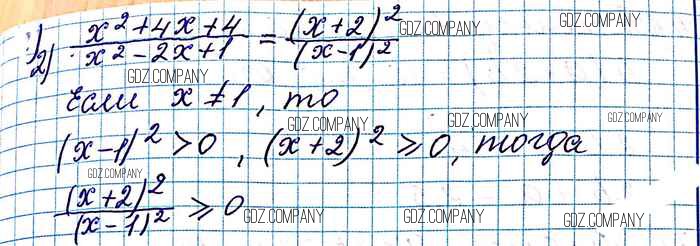 2) (x² + 4x + 4)/(x² - 2x + 1) = (x + 2)²/(x - 1)²
GDZ.COMPANY GDZ.COMPANY
GDZ.COMPANY
Если x ≠ 1, то
GDZ.COMPANY GDZ.COMPANY GDZ.COMPANY
(x - 1)² > 0, (x + 2)² ⩾ 0, тогда
GDZ.COMPANY
(x + 2)²/(x - 1)² ⩾ 0
GDZ.COMPANY GDZ.COMPANY GDZ.COMPANY